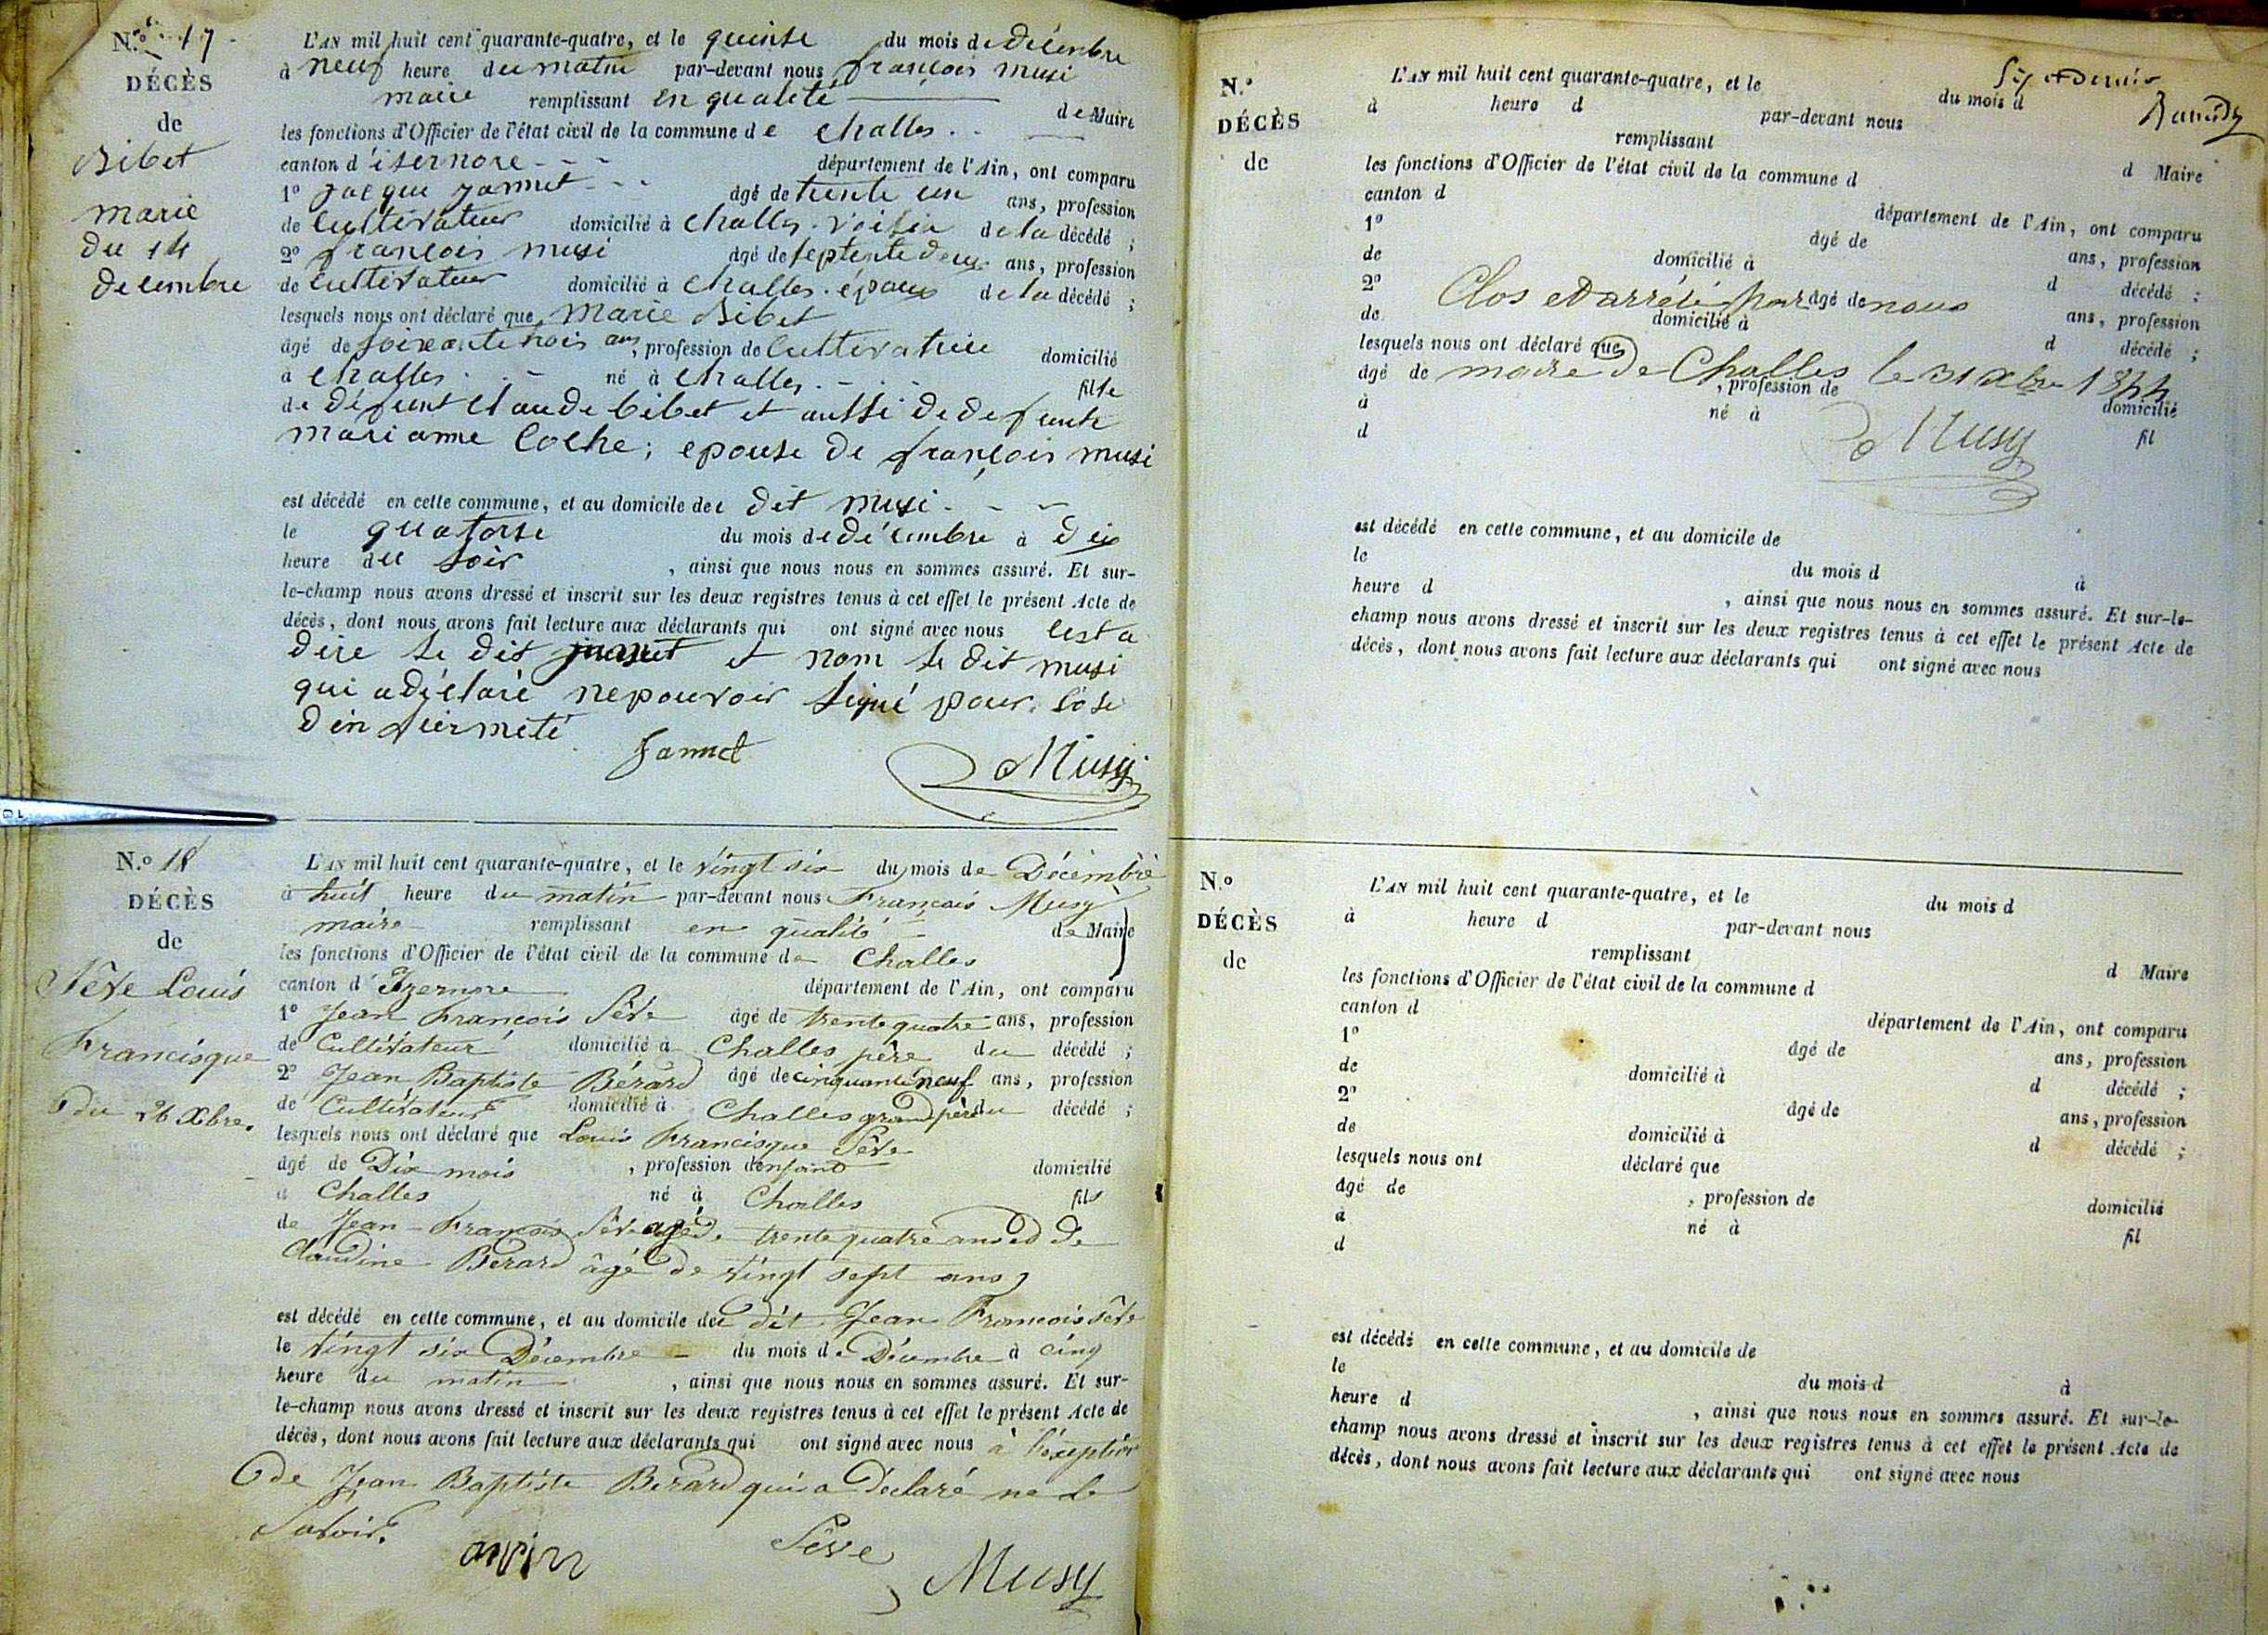 N.º 17
DÉCÈS
de
Bibet
marie
du 14
decembre
L'AN mil huit cent quarante-quatre, et le quinse du mois de décembre
à neuf heure du matin par-devant nous françois musi
maire remplissant en qualité de Maire
les fonctions d'Officier de l'état civil de la commune de challes
canton d'isernore département de l'Ain, ont comparu
1º Jacque Jannet âgé de trente un ans, profession
de cultivateur domicilié à challes voisin de la décédé ;
2º françois musi âgé de septente deux ans, profession
de cultivateur domicilié à challes époux de la décédé ;
lesquels nous ont déclaré que Marie Bibet
âgé de soixante trois ans, profession de cultivatrice domicilié
à challes né à challes fille
de défunt claude bibet et aussi de defunte
marianne Coche; epouse de françois musi
est décédé en cette commune, et au domicile du dit musi
le quatorse du mois de décembre à dix
heure du soir, ainsi que nous nous en sommes assuré. Et sur-
le-champ nous avons dressé et inscrit sur les deux registres tenus à cet effet le présent Acte de
décès, dont nous avons fait lecture aux déclarants qui ont signé avec nous cest a
dire le dit et nom le dit musi
qui a déclaré ne pouvoir signé pour cose
d'infiermité
Jannet Musy
N.º 18
DÉCÈS
de
Sève Louis
Francisque
du 26 Xbre.
L'AN mil huit cent quarante-quatre, et le vingt six du mois de Décembre
à huit heure du matin par-devant nous François Musy
maire remplissant en qualité de Maire
les fonctions d'Officier de l'état civil de la commune de Challes
canton d'Izernore département de l'Ain, ont comparu
1º Jean François Sève âgé de trente quatre ans, profession
de Cultivateur domicilié à Challes père du décédé ;
2º Jean Baptiste Bérard âgé de cinquante neuf ans, profession
de Cultivateur domicilié à Challes grand père du décédé ;
lesquels nous ont déclaré que Louis Francisque Sève
âgé de Dix mois, profession d'enfant domicilié
à Challes né à Challes fils
de Jean-François Sève agé de trente quatre ans et de
Claudine Bérard âgé de vingt sept ans,
est décédé en cette commune, et au domicile du dit Jean François Sève
le vingt six Décembre du mois de Décembre à cinq
heure du matin, ainsi que nous nous en sommes assuré. Et sur-
le-champ nous avons dressé et inscrit sur les deux registres tenus à cet effet le présent Acte de
décès, dont nous avons fait lecture aux déclarants qui ont signé avec nous à l'exeption
de Jean Baptiste Bérard qui a déclaré ne le
Savoir.
Sève Musy
Six et dernier
N.º
DÉCÈS
de
L'AN mil huit cent quarante-quatre, et le du mois d
à heure d par-devant nous
remplissant d Maire
les fonctions d'Officier de l'état civil de la commune d
canton d département de l'Ain, ont comparu
1º âgé de ans, profession
de domicilié à d décédé ;
2º âgé de ans, profession
de domicilié à d décédé ;
Clos et arrêté par nous
lesquels nous ont déclaré que
maire de Challes le 31 Xbre 1844
âgé de , profession de domicilié
à né à fil
d
Musy
est décédé en cette commune, et au domicile de
le du mois d à
heure d , ainsi que nous nous en sommes assuré. Et sur-le-
champ nous avons dressé et inscrit sur les deux registres tenus à cet effet le présent Acte de
décès, dont nous avons fait lecture aux déclarants qui ont signé avec nous
N.º
DÉCÈS
de
L'AN mil huit cent quarante-quatre, et le du mois d
à heure d par-devant nous
remplissant d Maire
les fonctions d'Officier de l'état civil de la commune d
canton d département de l'Ain, ont comparu
1º âgé de ans, profession
de domicilié à d décédé ;
2º âgé de ans, profession
de domicilié à d décédé ;
lesquels nous ont déclaré que
âgé de , profession de domicilié
à né à fil
d
est décédé en cette commune, et au domicile de
le du mois d à
heure d , ainsi que nous nous en sommes assuré. Et sur-le-
champ nous avons dressé et inscrit sur les deux registres tenus à cet effet le présent Acte de
décès, dont nous avons fait lecture aux déclarants qui ont signé avec nous